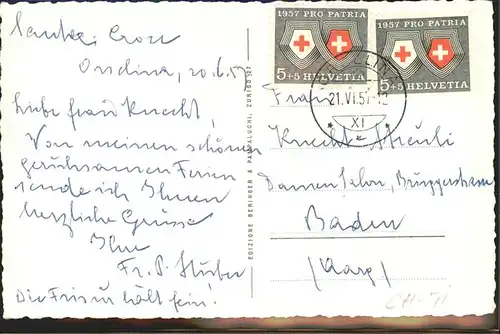 1957 PRO PATRIA
5+5 HELVETIA
1957 PRO PATRIA
5+5 HELVETIA
21.VI.57-12
XI
20.6.57
Liebe Frau Knecht,
Von meinen schönen
geruhsamen Ferien
sende ich Ihnen
herzliche Grüsse
Ihre
Fr. P. Huber
Die Frisur hält fein!
EDIZIONE BERINGER & PAMPALUCHI, ZURIGO
Frau
Knecht
Damen Salon, Bruggerstrasse
Baden
(Aarg)
CH-